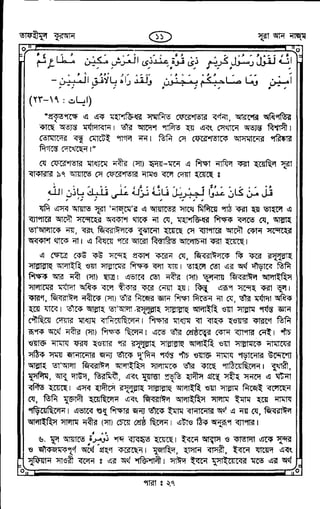 তাফহীমুল কুরআন ১১ সূরা আন নাজম
اِنَّهُ لَقَوْلُ رَسُوْلٍ كَرِيْمٍ ذِىْ قُوَّةٍ عِنْدَ ذِى مَكِيْنٍ مُّطَاعٍ ثَمَّ
اَمِيْنٍ وَمَا صَاحِبُكُمْ بِمَجْنُوْنٍ وَلَقَدْ رَاٰهُ بِالْاُفُقِ الْمُبِيْنِ -
(ايات : ١٩-٢٣)
"প্রকৃতপক্ষে এ এক মহাশক্তিধর সম্মানিত ফেরেশতার বর্ণনা, আরশের অধিপতির
কাছে অত্যন্ত মর্যাদাবান। তাঁর আদেশ পালিত হয় এবং সেখানে অত্যন্ত বিশ্বাসী।
তোমাদের বন্ধু মোটেই পাগল নন। তিনি সে ফেরেশতাকে আসমানের পরিষ্কার
দিগন্তে দেখেছেন।"
যে ফেরেশতার মাধ্যমে নবীর (সা) হৃদয়-মনে এ শিক্ষা নাযিল করা হয়েছিল সূরা
বাকারার ৯৭ আয়াতে সে ফেরেশতার নামও বলে দেয়া হয়েছে ঃ
قُلْ مَنْ كَانَ عَدُوًّا لِّجِبْرِيْلَ فَاِنَّهُ نَزَّلَهُ عَلٰى قَلْبِكَ بِاِذْنِ اللّٰهِ
যদি এসব আয়াত সূরা 'নাজমে'র এ আয়াতের সাথে মিলিয়ে পাঠ করা হয় তাহলে এ
ব্যাপারে আদৌ সন্দেহের অবকাশ থাকে না যে, মহাশক্তিধর শিক্ষক বলতে যে, আল্লাহ
তা'আলাকে নয়, বরং জিবরাঈলকে বুঝানো হয়েছে সে ব্যাপারে আদৌ কোন সন্দেহের
অবকাশ থাকে না। এ বিষয়ে পরে আরো বিস্তারিত আলোচনা করা হয়েছে।
এ ক্ষেত্রে কেউ কেউ সন্দেহ প্রকাশ করেন যে, জিবরাঈলকে কি করে রসূলুল্লাহ
সাল্লাল্লাহু আলাইহি ওয়া সাল্লামের শিক্ষক বলা যায়। তাহলে তো এর অর্থ দাঁড়াবে তিনি
শিক্ষক আর নবী (সা) ছাত্র। এভাবে তো নবীর (সা) তুলনায় জিবরাঈল আলাইহিস
সালামের মর্যাদা অধিক বলে স্বীকার করে নেয়া হয়। কিন্তু এরূপ সন্দেহ করা ভুল।
কারণ, জিবরাঈল নবীকে (সা) তাঁর নিজের জ্ঞান শিক্ষা দিতেন না যে, তাঁর মর্যাদা অধিক
হয়ে যাবে। তাঁকে আল্লাহ তা'আলা রসূলুল্লাহ সাল্লাল্লাহু আলাইহি ওয়া সাল্লাম পর্যন্ত জ্ঞান
পৌঁছিয়ে দেয়ার মাধ্যম বানিয়েছিলেন। শিক্ষার মাধ্যম বা বাহক হওয়ার কারণে তিনি
রূপক অর্থে নবীর (সা) শিক্ষক ছিলেন। এতে তাঁর শ্রেষ্ঠত্বের কোন ব্যাপার নেই। পাঁচ
ওয়াক্ত নামায ফরয হওয়ার পর রসূলুল্লাহ সাল্লাল্লাহু আলাইহি ওয়া সাল্লামকে নামাযের
সঠিক সময় জানানোর জন্য তাঁকে দু'দিন পর্যন্ত পাঁচ ওয়াক্ত নামায পড়ানোর উদ্দেশ্যে
আল্লাহ তা'আলা জিবরাঈল আলাইহিস সালামকে তাঁর কাছে পাঠিয়েছিলেন। বুখারী,
মুসলিম, আবু দাউদ, তিরমিযী, এবং মুয়াত্তা প্রভৃতি হাদীস গ্রন্থে সহীহ সনদে এ ঘটনা
বর্ণিত হয়েছে। এসব হাদীসে রসূলুল্লাহ সাল্লাল্লাহু আলাইহি ওয়া সাল্লাম নিজেই বলেছেন
যে, তিনি মুক্তাদী হয়েছিলেন এবং জিবরাঈল আলাইহিস সালাম ইমাম হয়ে নামায
পড়িয়েছিলেন। এভাবে শুধু শিক্ষার জন্য তাঁকে ইমাম বানানোর অর্থ এ নয় যে, জিবরাঈল
আলাইহিস সালাম নবীর (সা) চেয়ে শ্রেষ্ঠ ছিলেন। এটাও ঠিক অনুরূপ ব্যাপার।
৬. মূল আয়াতে ذُوْ مِرَّةٍ শব্দ ব্যবহৃত হয়েছে। ইবনে আব্বাস ও কাতাদা একে সুন্দর
ও জাঁকজমকপূর্ণ অর্থে গ্রহণ করেছেন। মুজাহিদ, হাসান বাসরী, ইবনে যায়েদ এবং
সুফিয়ান সাওরী বলেন ঃ এর অর্থ শক্তিশালী। সাঈদ ইবনে মুসাইয়েবের মতে এর অর্থ
পারা ঃ ২৭